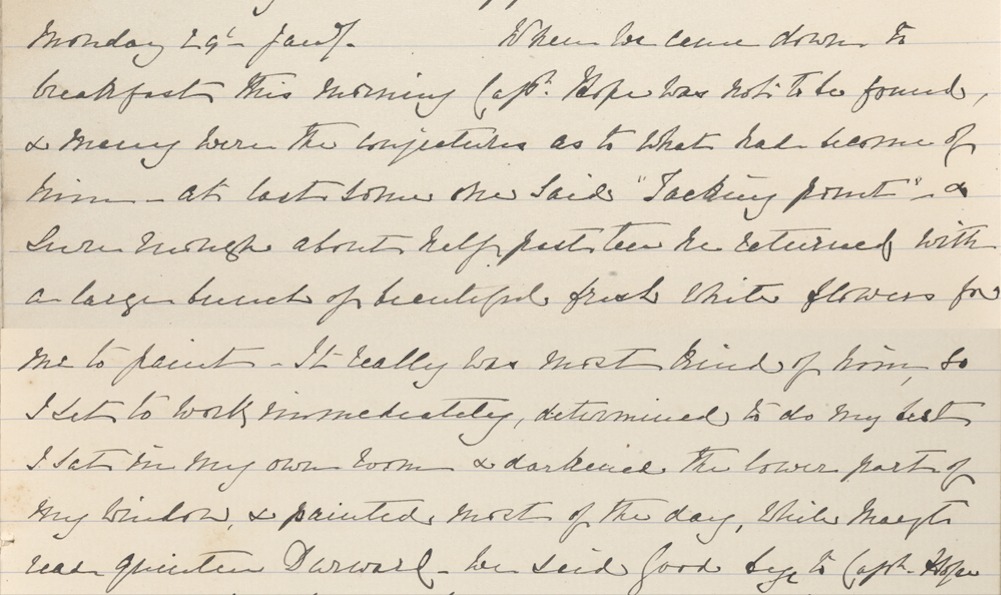 Monday 29th Jany. When we came down to
breakfast this morning Capt. Hope was not to be found,
& many were the conjectures as to what had become of
him - at last some one said "Tacking point" - &
sure enough about half past ten he returned with
a large bunch of beautiful fresh white flowers for
me to paint - It really was most kind of him, so
I set to work immediately, determined to do my best
I sat in my own room & darkened the lower part of
my window, & painted most of the day, while Margt
read Quentin Durward - We said good bye to Capt. Hope